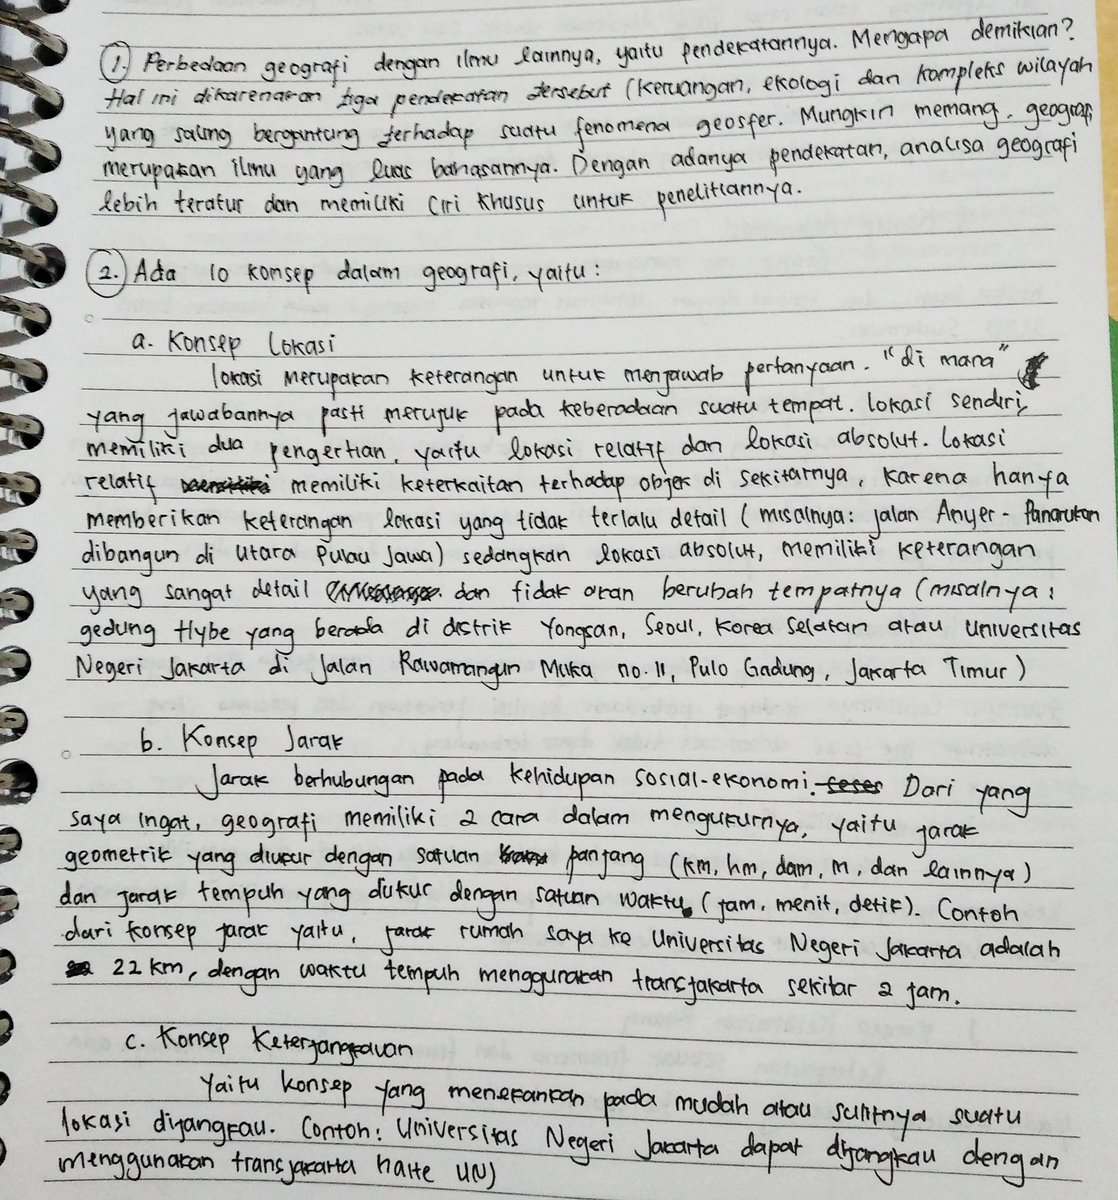 1. Perbedaan geografi dengan ilmu lainnya, yaitu pendekatannya. Mengapa demikian?
Hal ini dikarenakan tiga pendekatan tersebut (keruangan, ekologi dan kompleks wilayah
yang saling bergantung terhadap suatu fenomena geosfer. Mungkin memang, geografi
merupakan ilmu yang luas bahasannya. Dengan adanya pendekatan, analisa geografi
lebih teratur dan memiliki ciri khusus untuk penelitiannya.
2. Ada 10 konsep dalam geografi, yaitu :
a. Konsep Lokasi
lokasi merupakan keterangan untuk menjawab pertanyaan. "di mana"
yang jawabannya pasti merujuk pada keberadaan suatu tempat. lokasi sendiri,
memiliki dua pengertian, yaitu lokasi relatif dan lokasi absolut. Lokasi
relatif memiliki keterkaitan terhadap objek di sekitarnya, karena hanya
memberikan keterangan lokasi yang tidak terlalu detail (misalnya: jalan Anyer - Panarukan
dibangun di utara Pulau Jawa) sedangkan lokasi absolut, memiliki keterangan
yang sangat detail dan tidak akan berubah tempatnya (misalnya :
gedung Hybe yang berada di distrik Yongsan, Seoul, Korea Selatan atau Universitas
Negeri Jakarta di Jalan Rawamangun Muka no. 11, Pulo Gadung, Jakarta Timur)
b. Konsep Jarak
Jarak berhubungan pada kehidupan sosial-ekonomi. Dari yang
saya ingat, geografi memiliki 2 cara dalam mengukurnya, yaitu jarak
geometrik yang diukur dengan satuan panjang (km, hm, dam, m, dan lainnya)
dan jarak tempuh yang diukur dengan satuan waktu (jam, menit, detik). Contoh
dari konsep jarak yaitu, jarak rumah saya ke Universitas Negeri Jakarta adalah
22 km, dengan waktu tempuh menggunakan transjakarta sekitar 2 jam.
c. Konsep Keterjangkauan
Yaitu konsep yang menekankan pada mudah atau sulitnya suatu
lokasi dijangkau. Contoh: Universitas Negeri Jakarta dapat dijangkau dengan
menggunakan transjakarta halte UNJ